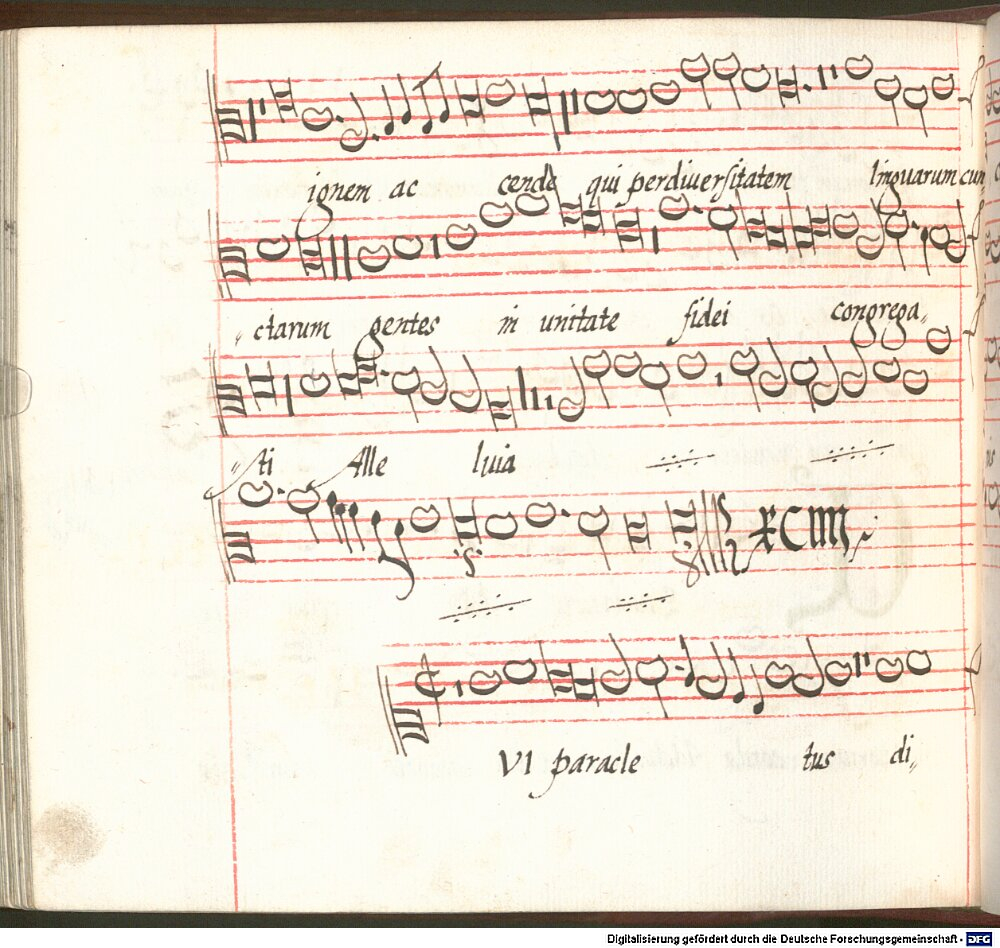 ignem ac cende qui perdiuersitatem linguarum cun
ctarum gentes in unitate fidei congrega
sti Alle luia
VI paracle tus di
Digitalisierung gefördert durch die Deutsche Forschungsgemeinschaft - DFG